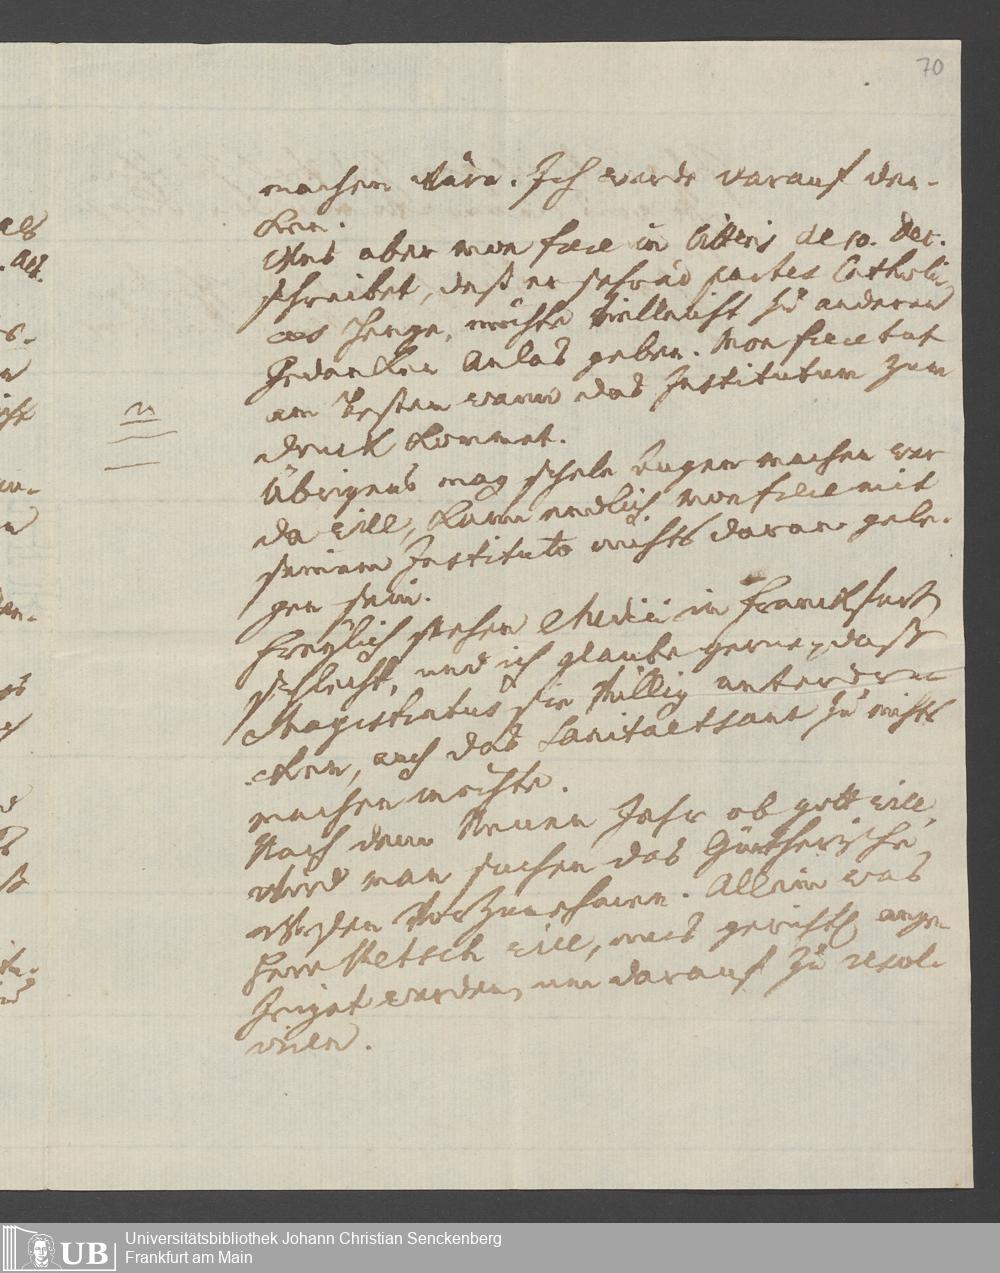 70
machen wäre. Ich werde darauf den-
ken.
Was aber mon frere in litteris de 10. Dec.
schreibet, daß er sehr ad partes Catholi-
cas henge, möchte vielleicht zu anderen
Gedancken Anlas geben. Mon frere thut
am besten wann das Institutum zum
druck kommet.
Übrigens mag schele Augen machen wer
da will, kann endlich mon frere mit
seinem Instituto nichts daran gele-
gen sein.
Freylich stehen Medici in Franckfurt
schlecht, und ich glaube gerne, daß
Magistratus sie völlig unterdru-
cken, auch das Sanitaetsamt zu nichts
machen möchte.
Nach dem Neuen Jahr ob gott will,
wird man suchen das Güntherische
vorzunehmen. Allein was
Herr Metsch will, mus gerichtl. ange-
zeiget werden, um darauf zu resol-
viren.
als
Universitätsbibliothek Johann Christian Senckenberg
Frankfurt am Main
UB